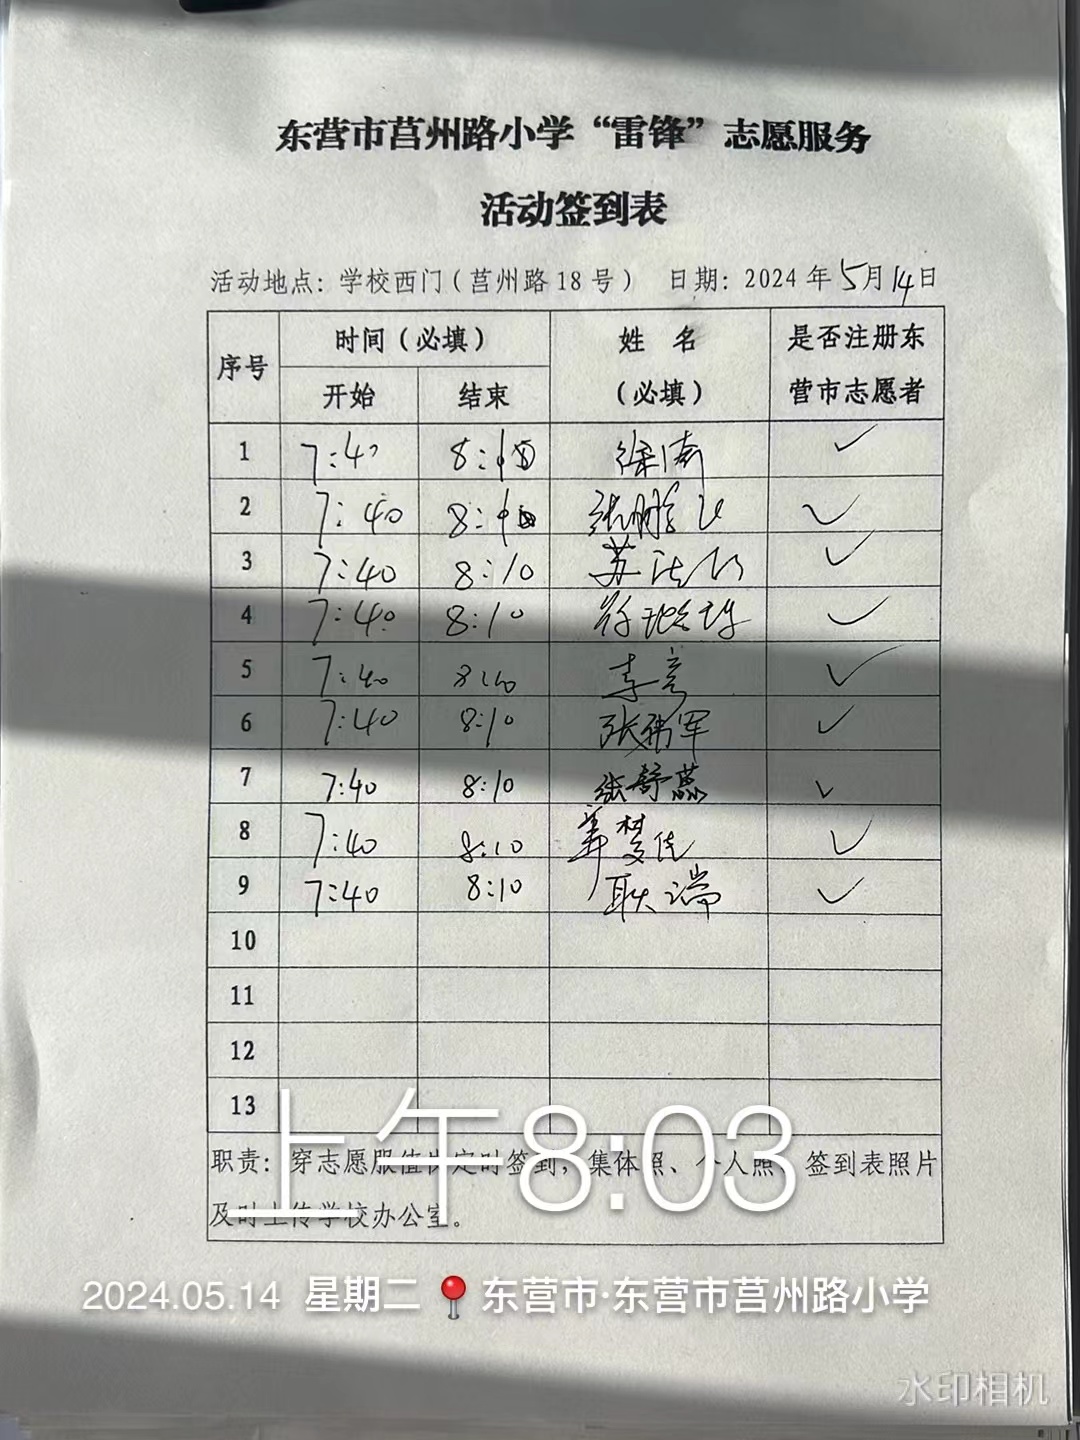 东营市莒州路小学“雷锋”志愿服务
活动签到表
活动地点：学校西门（莒州路18号） 日期：2024年5月14日
序号 时间（必填） 姓 名 是否注册东
开始 结束 （必填） 营市志愿者
1 7:40 8:10 ✓
2 7:40 8:10 ✓
3 7:40 8:10 苏 ✓
4 7:40 8:10 ✓
5 7:40 8:10 李彦 ✓
6 7:40 8:10 张伟军 ✓
7 7:40 8:10 张舒蕊 ✓
8 7:40 8:10 梦佳 ✓
9 7:40 8:10 耿端 ✓
10
11
12
13
上午8:03
职责：穿志愿服值岗定时签到，集体照、个人照、签到表照片
及时上传学校办公室。
2024.05.14 星期二 东营市·东营市莒州路小学
水印相机